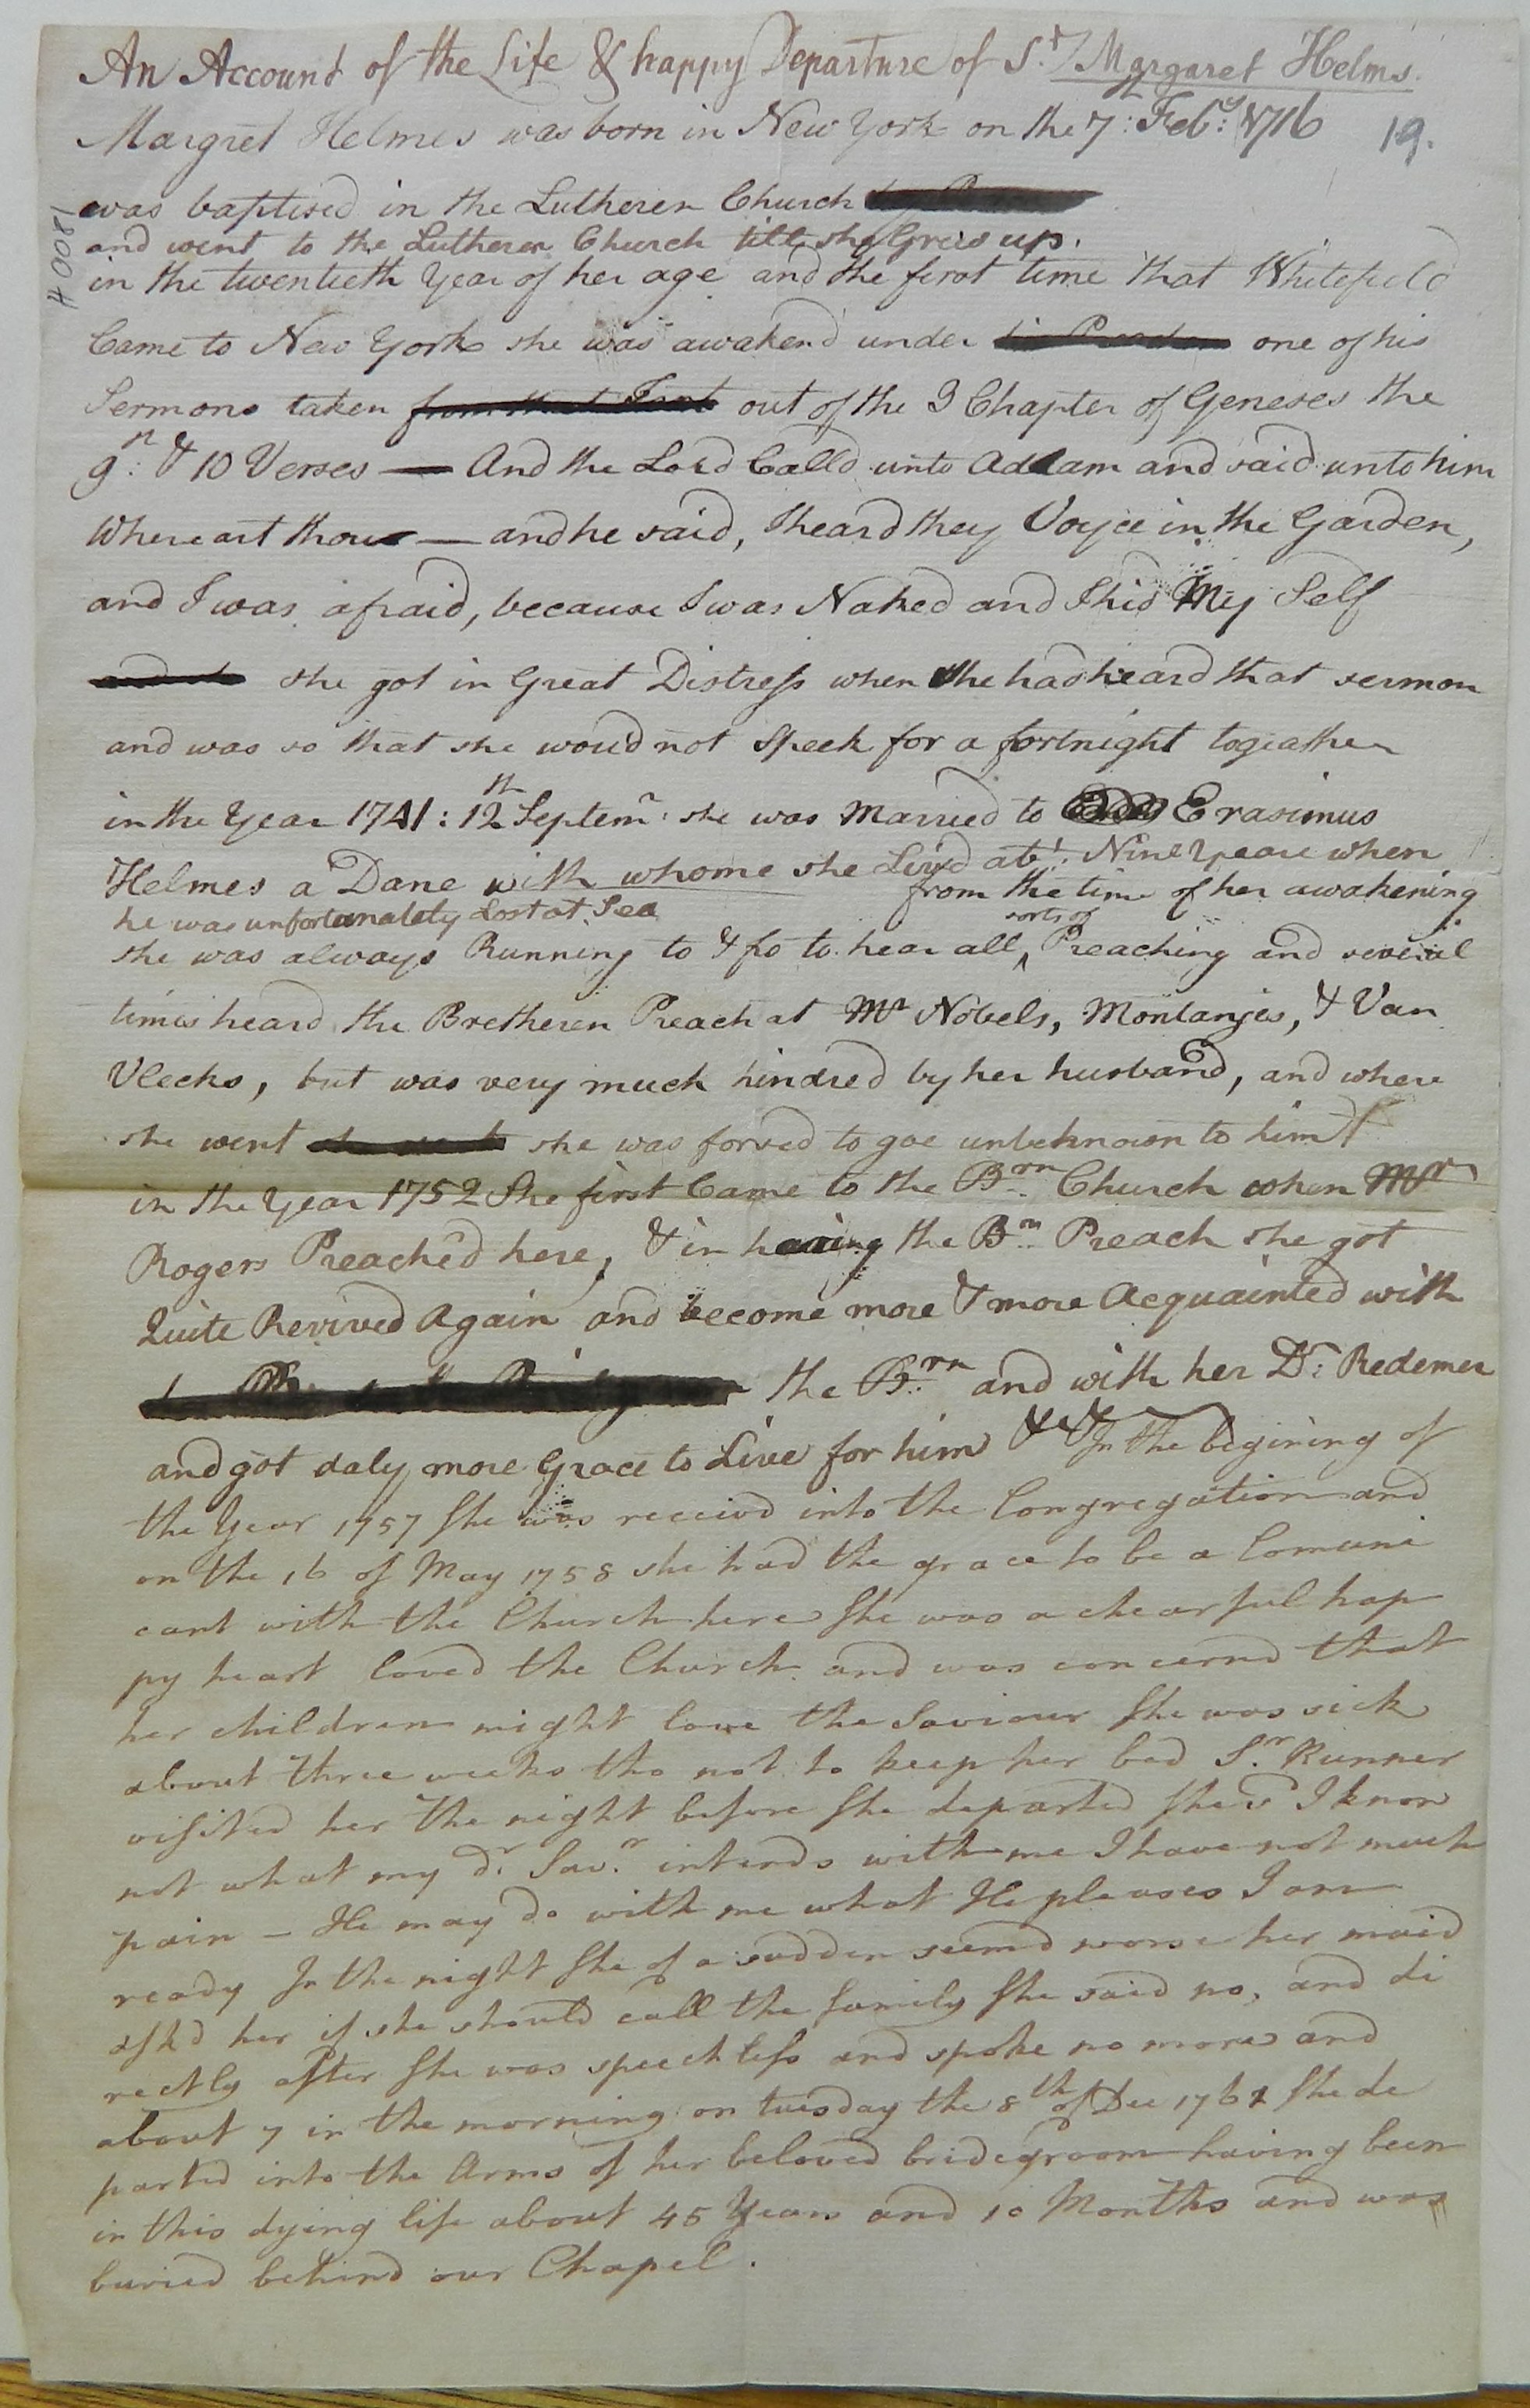 An Account of the Life & happy Departure of Sr Margaret Helms.
Margret Helmes was born in New York on the 7: Feby: 1716 19.
was baptised in the Lutheren Church
and went to the Lutheren Church till she Grew up.
in the twentieth Year of her age and the first time that Whitefield
Came to New York she was awakend under one of his
Sermons taken from that Text out of the 3 Chapter of Geneses the
9th: & 10 Verses — And the Lord Calld unto Adam and said unto him
Where art thou — and he said, I heard they Voyce in the Garden,
and I was afraid, because I was Naked and I hid My Self
she got in Great Distress when she had heard that sermon
and was so that she woud not Speek for a fortnight togeather
in the Year 1741: 12th Septemr: she was Married to Erasimus
Helmes a Dane with whome she Livd abt: Nine Years when
he was unfortunatety Lost at Sea from the time of her awakening
she was always Running to & fro to hear all sorts of Preaching and several
times heard the Bretheren Preach at Mr Nobels, Montanjes, & Van
Vlecks, but was very much hindred by her husband, and where
she went she was forsed to goe unbeknown to him
in the Year 1752 She first Came to the Brn Church when Mr
Rogers Preach'd here, & in hearing the Brn Preach she got
Quite Revived Again and become more & more Acquainted with
the Brn and with her Dr: Redemer
and got daly more Grace to Live for him & & In the begining of
the Year 1757 She was receivd into the Congregation and
on the 16 of May 1758 she had the grace to be a Comuni
cant with the Church here She was a chearful hap
py heart loved the Church and was concernd that
her children might love the Saviour She was sick
about three weeks tho not to keep her bed Sr. Runner
visited her the night before She departed She sd I know
not what my dr Savr. intends with me I have not much
pain — He may do with me what He pleases I am
ready In the night She of a sudden seemd worse her maid
ask'd her if she should call the family She said no, and di
rectly after She was speechless and spoke no more and
about 7 in the morning on tuesday the 8th of Dec 1761 She de
parted into the Arms of her beloved bridegroom having been
in this dying life about 45 Years and 10 Months and was
buried behind our Chapel.